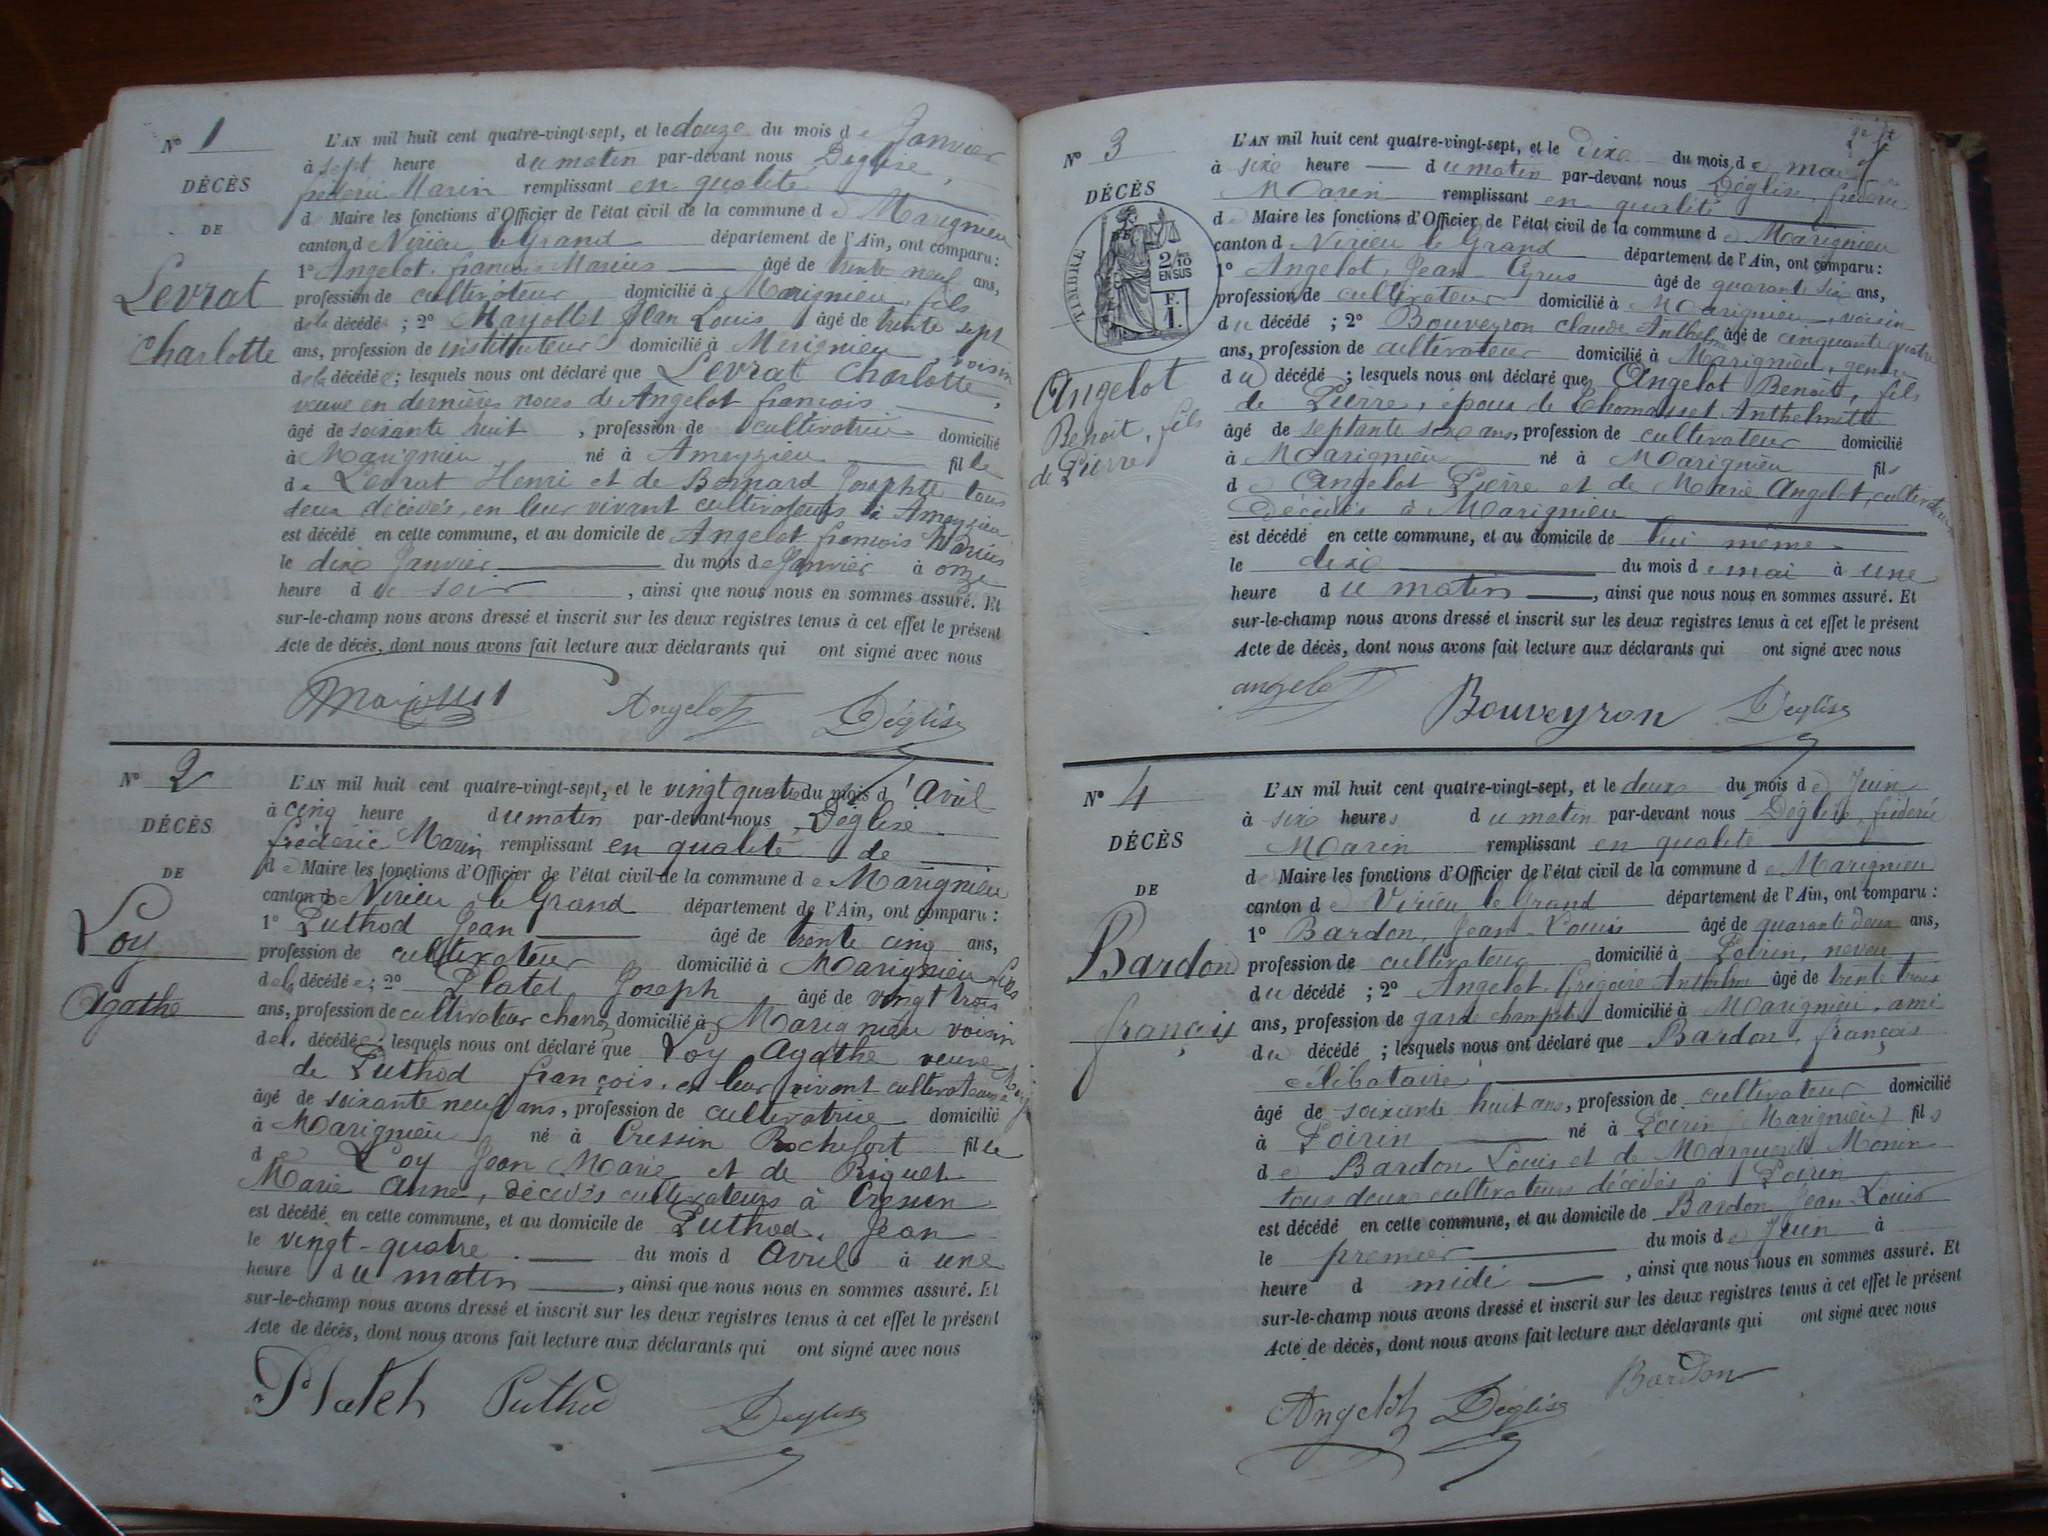 N° 1
DÉCÈS
DE
Levrat
Charlotte
L'AN mil huit cent quatre-vingt-sept, et le douze du mois de Janvier
à sept heure du matin par-devant nous Déglise,
fréderic Marin remplissant en qualité
de Maire les fonctions d'Officier de l'état civil de la commune de Marignieu
canton de Virieu le Grand département de l'Ain, ont comparu :
1° Angelot, françois Marius âgé de trente neuf ans,
profession de cultivateur domicilié à Marignieu, fils
de la décédée ; 2° Mayollet Jean Louis âgé de trente sept
ans, profession de instituteur domicilié à Marignieu, voisin
de la décédée ; lesquels nous ont déclaré que Levrat Charlotte,
veuve en dernières noces de Angelot françois
âgé de soixante huit , profession de cultivatrice domicilié
à Marignieu né à Ameyzieu fille
de Levrat Henri et de Bernard Josephte tous
deux décédés, en leur vivant cultivateurs à Ameyzieu
est décédé en cette commune, et au domicile de Angelot françois Marius
le dix Janvier du mois de Janvier à onze
heure du soir , ainsi que nous nous en sommes assuré. Et
sur-le-champ nous avons dressé et inscrit sur les deux registres tenus à cet effet le présent
Acte de décès, dont nous avons fait lecture aux déclarants qui ont signé avec nous
Angelot Déglise
N° 2
DÉCÈS
DE
Loy
Agathe
L'AN mil huit cent quatre-vingt-sept, et le vingt quatre du mois d'Avril
à cinq heure du matin par-devant nous Déglise
fréderic Marin remplissant en qualité de
de Maire les fonctions d'Officier de l'état civil de la commune de Marignieu
canton de Virieu le Grand département de l'Ain, ont comparu :
1° Puthod Jean âgé de trente cinq ans,
profession de cultivateur domicilié à Marignieu fils
de la décédée ; 2° Platet Joseph âgé de vingt trois
ans, profession de cultivateur domicilié à Marignieu voisin
de l. décédée ; lesquels nous ont déclaré que Loy Agathe veuve
de Puthod françois, en leur vivant cultivateurs à
âgé de soixante neuf ans, profession de cultivatrice domicilié
à Marignieu né à Cressin Rochefort fille
de Loy Jean Marie et de Riguet
Marie Anne, décédés cultivateurs à Cressin
est décédé en cette commune, et au domicile de Puthod, Jean
le vingt-quatre du mois d Avril à une
heure du matin , ainsi que nous nous en sommes assuré. Et
sur-le-champ nous avons dressé et inscrit sur les deux registres tenus à cet effet le présent
Acte de décès, dont nous avons fait lecture aux déclarants qui ont signé avec nous
Platet Puthod Déglise
N° 3
DÉCÈS
TIMBRE
2/10
EN SUS
F.
1.
Angelot
Benoit, fils
de Pierre
L'AN mil huit cent quatre-vingt-sept, et le dix du mois de mai
à six heure du matin par-devant nous Déglise, fréderic
Marin remplissant en qualité
de Maire les fonctions d'Officier de l'état civil de la commune de Marignieu
canton d Virieu le Grand département de l'Ain, ont comparu :
1° Angelot, Jean Cyrus âgé de quarante six ans,
profession de cultivateur domicilié à Marignieu, voisin
du décédé ; 2° Bouveyron Claude Anthelme âgé de cinquante quatre
ans, profession de cultivateur domicilié à Marignieu, gendre
du décédé ; lesquels nous ont déclaré que Angelot Benoit, fils
de Pierre, époux de Thomasset Anthelmette
âgé de septante six ans, profession de cultivateur domicilié
à Marignieu né à Marignieu fils
de Angelot Pierre et de Marie Angelot, cultivateurs
décédés à Marignieu
est décédé en cette commune, et au domicile de lui même
le dix du mois de mai à une
heure du matin , ainsi que nous nous en sommes assuré. Et
sur-le-champ nous avons dressé et inscrit sur les deux registres tenus à cet effet le présent
Acte de décès, dont nous avons fait lecture aux déclarants qui ont signé avec nous
angelot Bouveyron Déglise
N° 4
DÉCÈS
DE
Bardon
françois
L'AN mil huit cent quatre-vingt-sept, et le deux du mois de Juin
à six heures du matin par-devant nous Déglise, fréderic
Marin remplissant en qualité
de Maire les fonctions d'Officier de l'état civil de la commune de Marignieu
canton de Virieu le Grand département de l'Ain, ont comparu :
1° Bardon, Jean-Louis âgé de quarante deux ans,
profession de cultivateur domicilié à Poirin, neveu
du décédé ; 2° Angelot Grégoire Anthelme âgé de trente trois
ans, profession de garde champêtre domicilié à Marignieu, ami
du décédé ; lesquels nous ont déclaré que Bardon, françois
célibataire
âgé de soixante huit ans, profession de cultivateur domicilié
à Poirin né à Poirin (Marignieu) fils
de Bardon Louis et de Marguerite Monin
tous deux cultivateurs décédés à Poirin
est décédé en cette commune, et au domicile de Bardon Jean-Louis
le premier du mois de Juin à
heure d midi , ainsi que nous nous en sommes assuré. Et
sur-le-champ nous avons dressé et inscrit sur les deux registres tenus à cet effet le présent
Acte de décès, dont nous avons fait lecture aux déclarants qui ont signé avec nous
Angelot Déglise Bardon